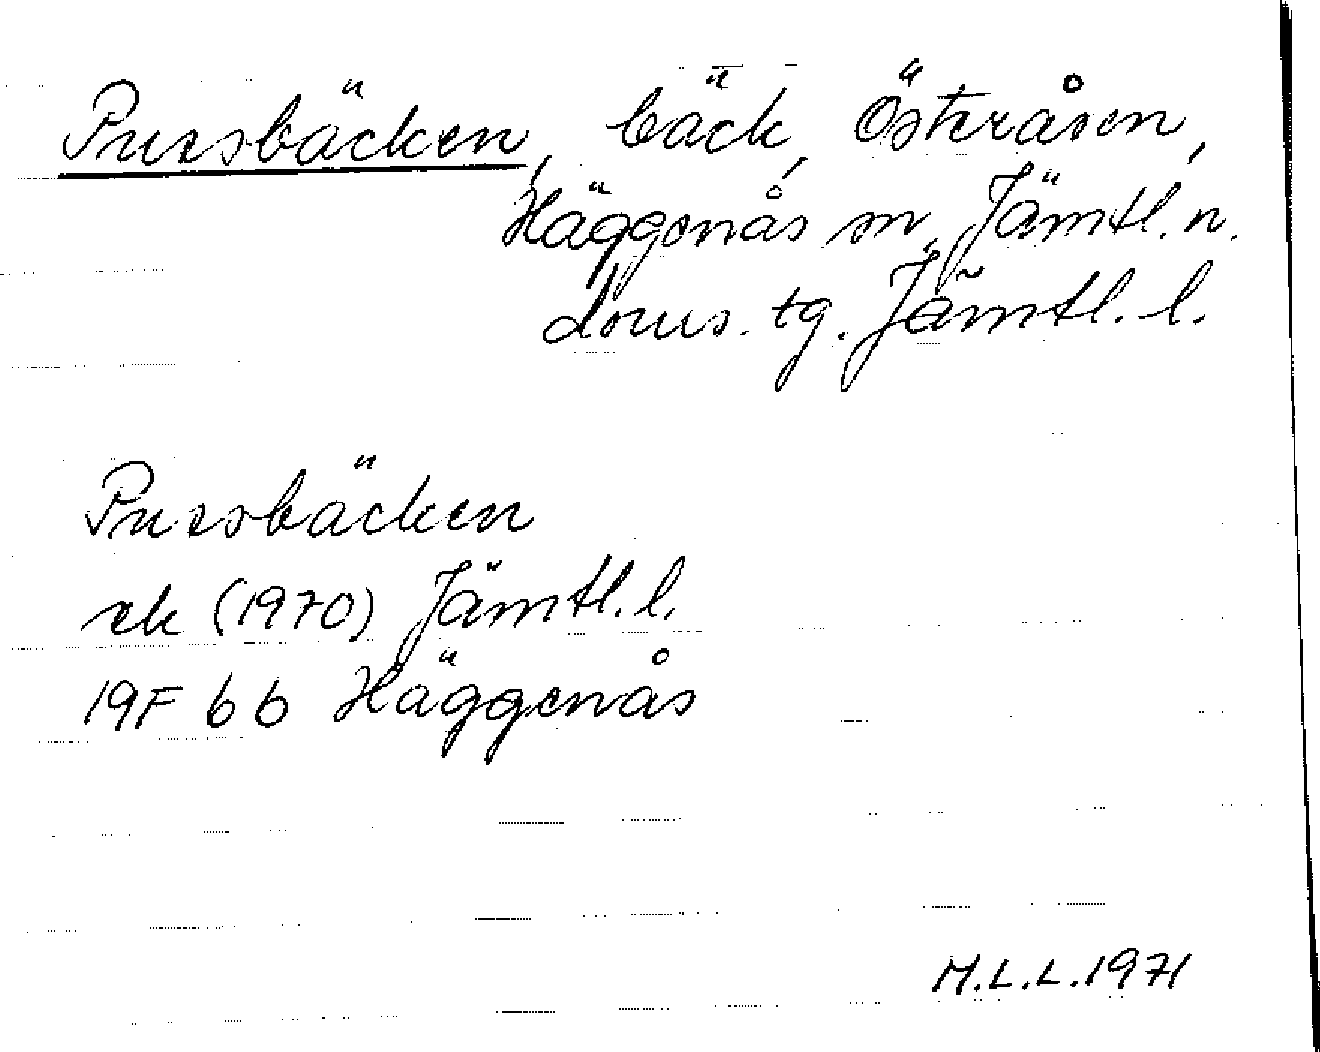 Pursbäcken, bäck, Österåsen,
Häggenås sn, Jämtl. n.
doms. tg. Jämtl. l.
Pursbäcken
rk (1970) Jämtl. l.
19F 6 b Häggenås
M.L.L. 1971